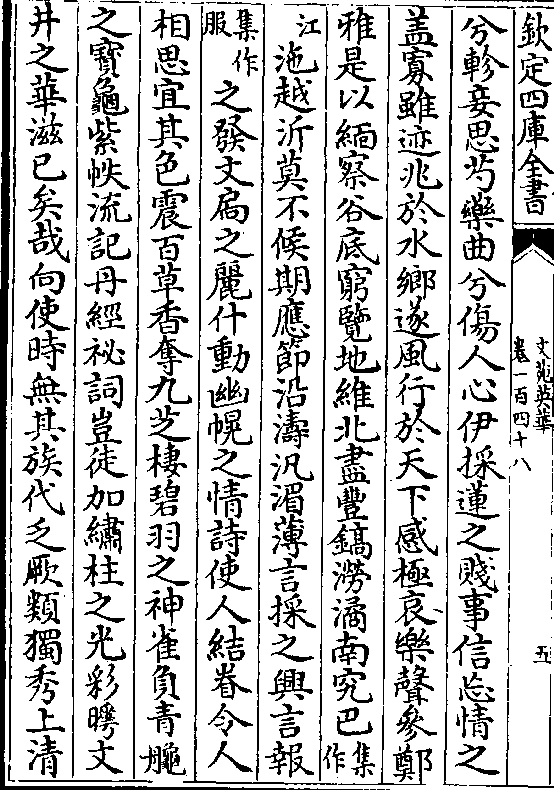 欽定四庫全書
文苑英華
卷一百四十八
五
兮軫妾思芍藥曲兮傷人心伊採蓮之賤事信忘情之
蓋寡雖迹兆於水鄉遂風行於天下感極哀樂聲參鄭
雅是以緬察谷底窮覽地維北盡豐鎬澇潏南究巴集作
江沲越沂莫不候期應節沿濤汎湄薄言採之興言報
集作服之發文扃之麗什動幽幌之情詩使人結眷令人
相思宜其色震百草香奪九芝棲碧羽之神雀負青龜
之寶龜紫帙流記丹經祕詞豈徒加繡柱之光彩曄文
井之華滋已矣哉向使時無其族代乏厥類獨秀上清